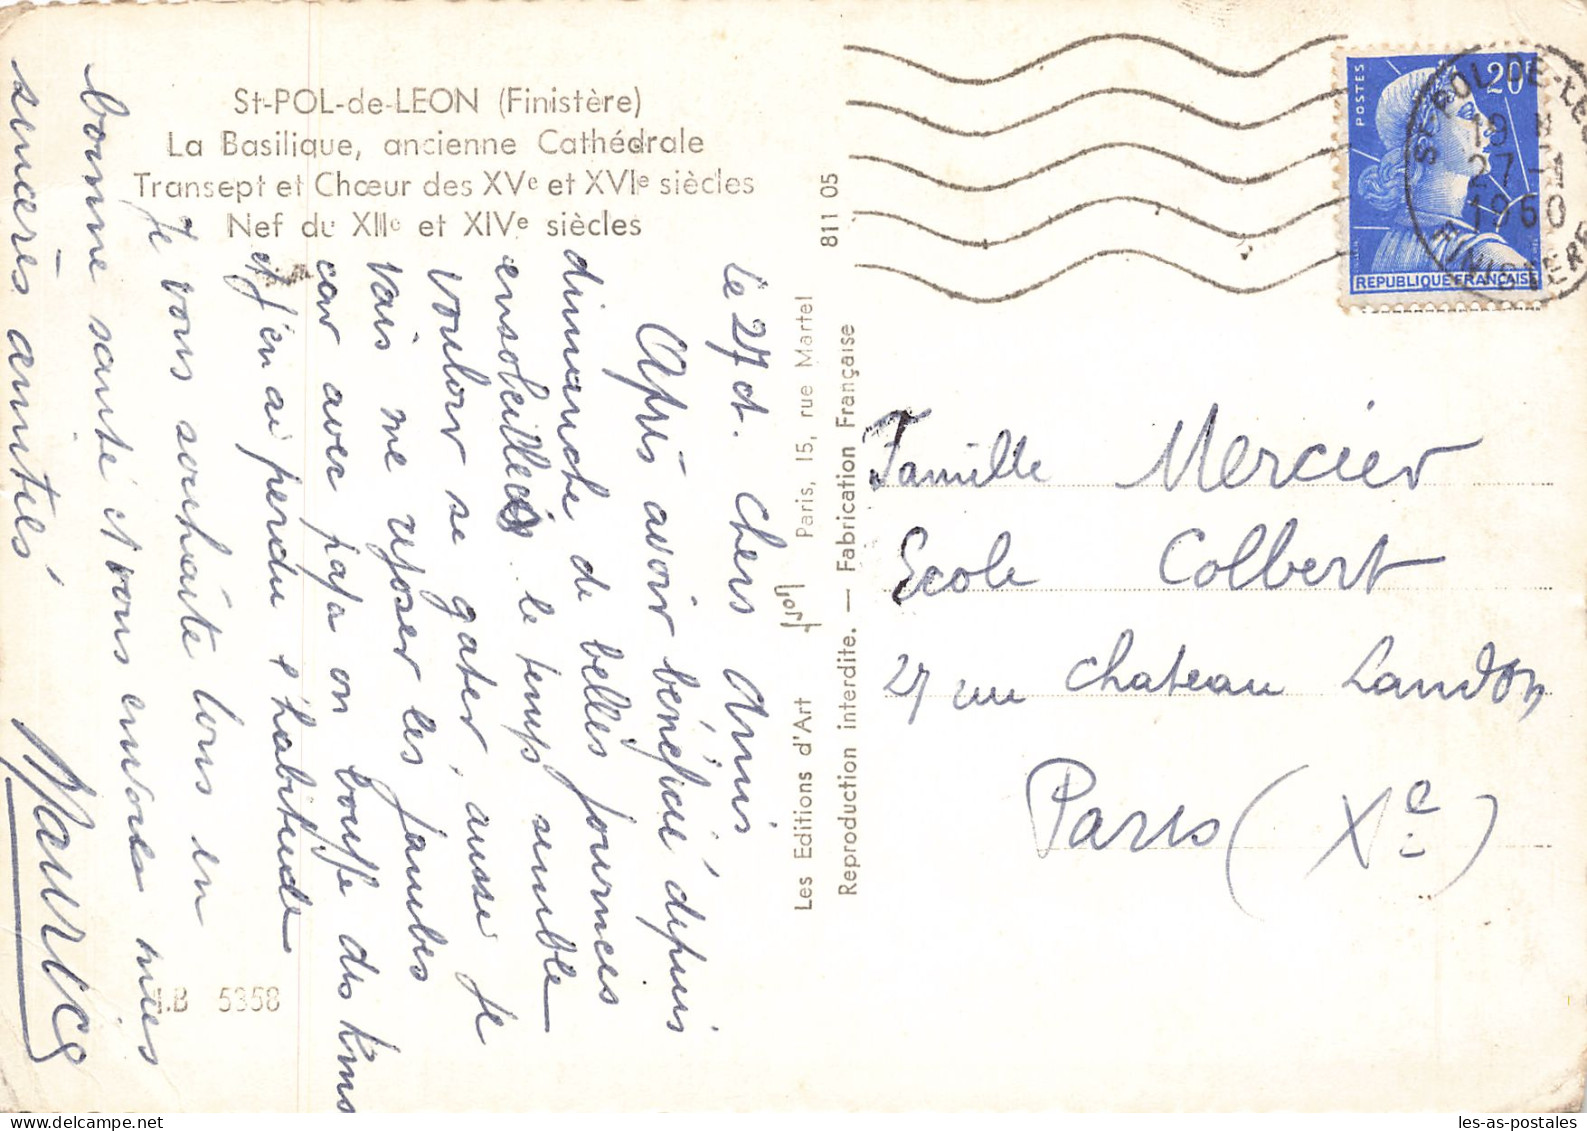 St-POL-de-LEON (Finistère)
La Basilique, ancienne Cathédrale
Transept et Chœur des XVe et XVIe siècles
Nef du XIIIe et XIVe siècles
Le 27 ct. Chers Amis
Après avoir bénéficié depuis
dimanche de belles journées
ensoleillées le temps semble
vouloir se gâter, aussi je
vais me reposer les jambes
car avec papa on bouffe des kms
et j'en ai perdu l'habitude
Je vous souhaite tous en
bonne santé et vous envoie mes
sincères amitiés
Maurice
J.B 5358
81 1 05
Les Editions d'Art Yvon Paris, 15, rue Martel
Reproduction interdite. — Fabrication Française
POSTES
20F
REPUBLIQUE FRANÇAISE
ST-POL-DE-LEON
19 H
27 -1
1960
FINISTERE
Famille Mercier
Ecole Colbert
27 rue Chateau Landon
Paris (Xe)
les-as-postales